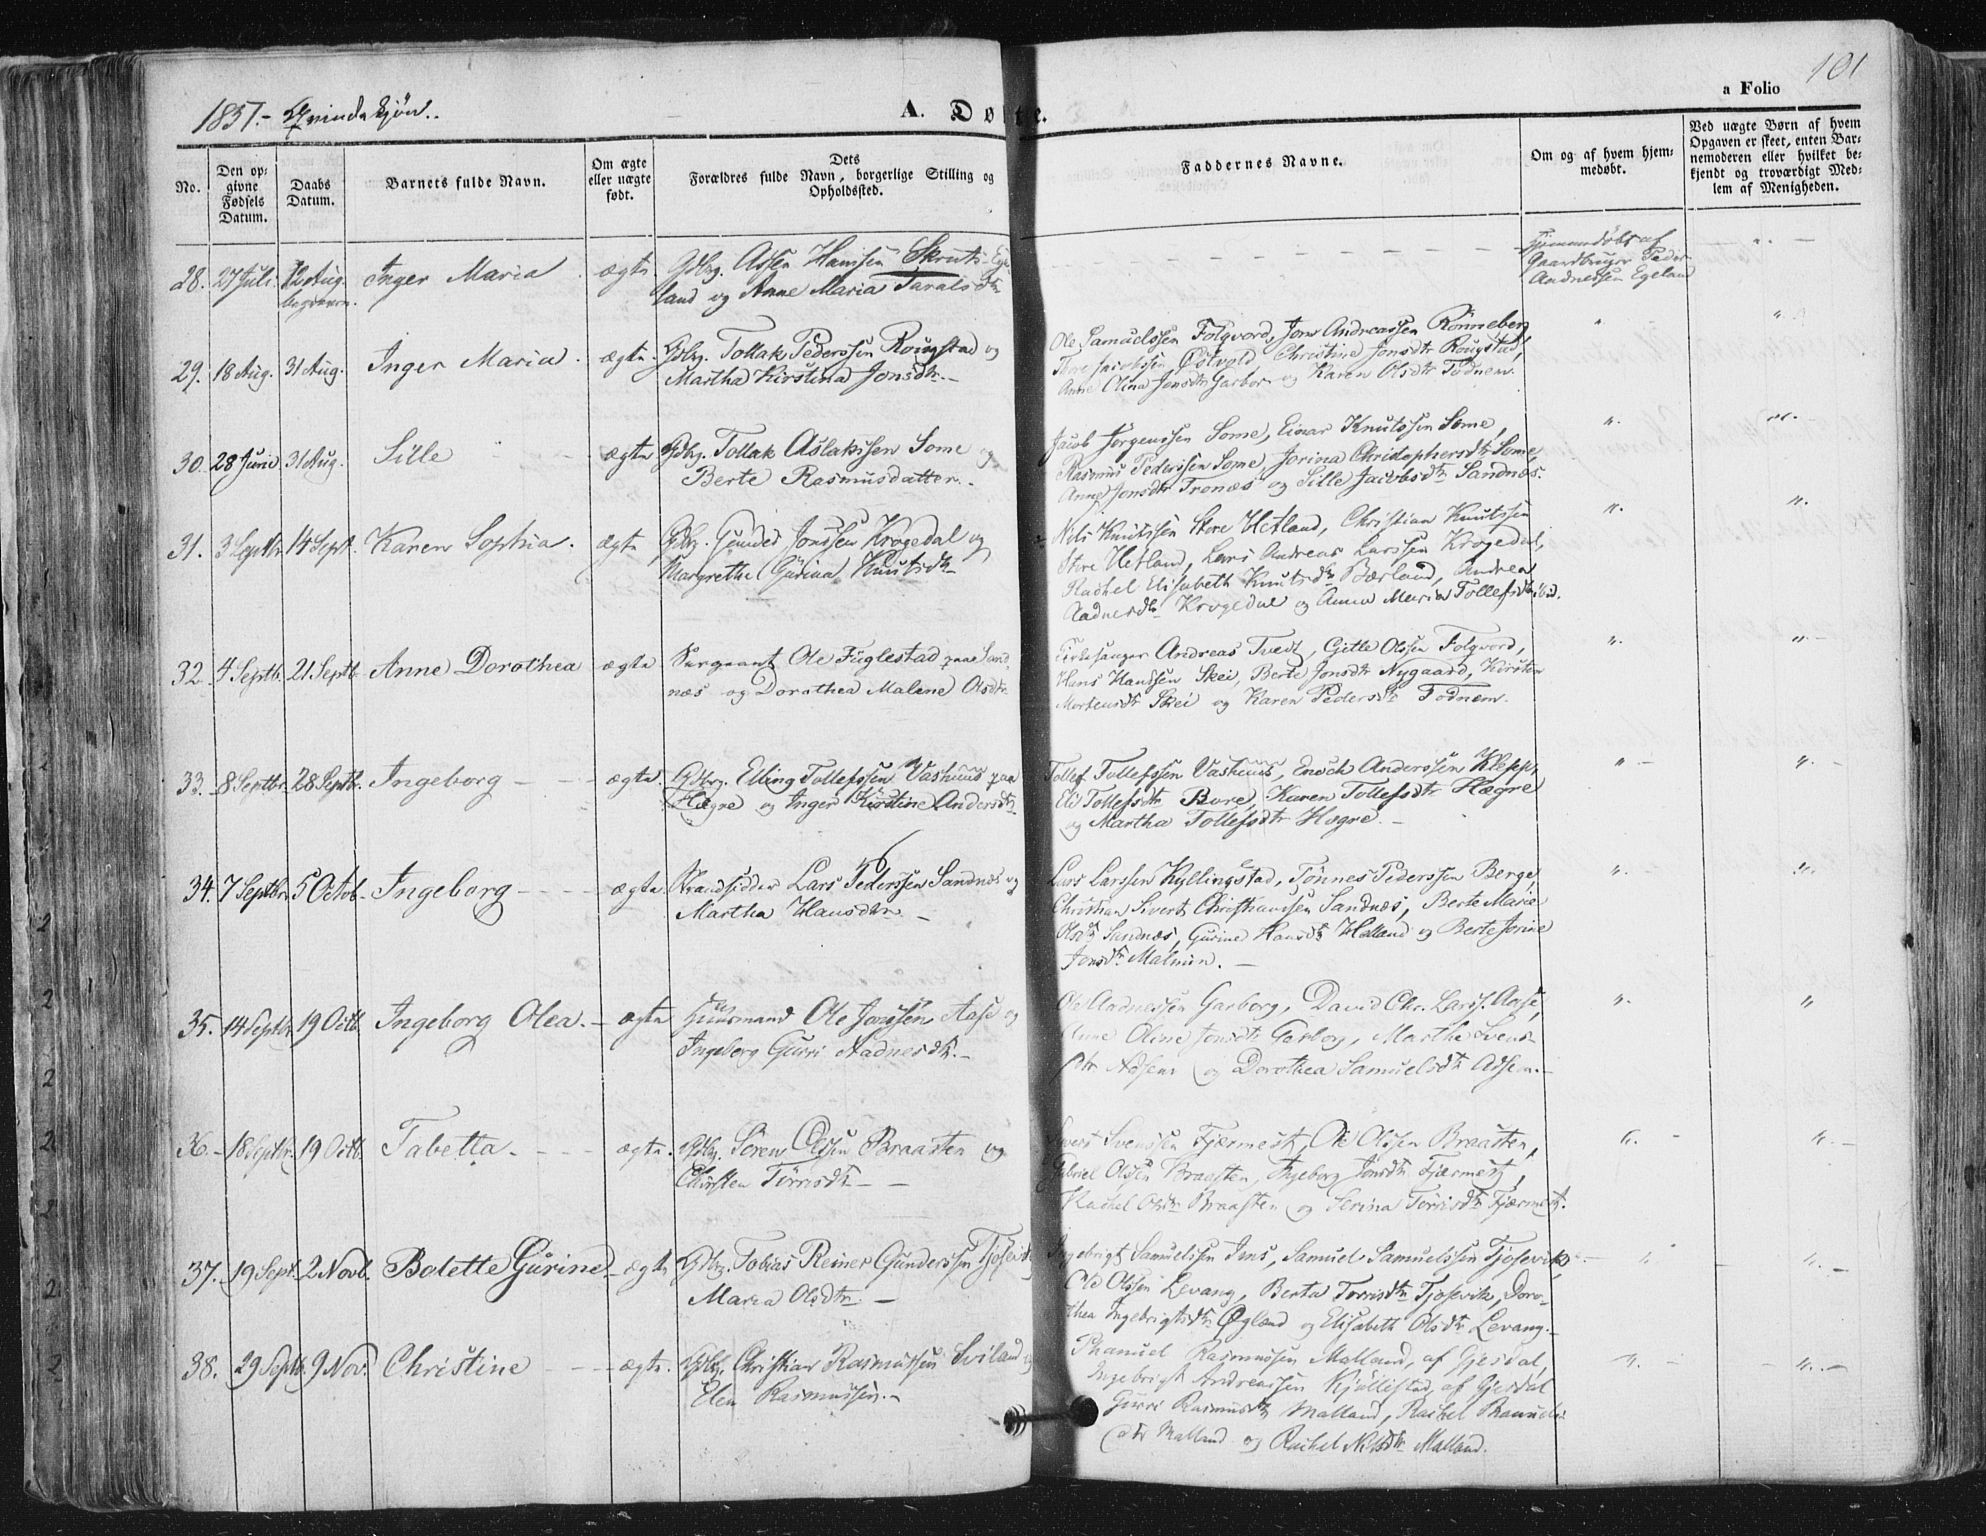 1857.- Qvindekjøn.
A. Døbte.
a Folio 101
No.
Den op-
givne
Fødsels
Datum.
Daabs
Datum.
Barnets fulde Navn.
Om ægte
eller uægte
født.
Dets
Forældres fulde Navn, borgerlige Stilling og
Opholdssted.
Faddernes Navne.
Om og af hvem hjem-
medøbt.
Ved uægte Børn af hvem
Opgaven er skeet, enten Bar-
nemoderen eller hvilket be-
kjendt og troværdigt Med-
lem af Menigheden.
28. 27 Juli. 12 Aug. begraven. Inger Maria ægte Gdbrg. Hansen Skruts-Ege-
land og Anne Maria Taralsdtr
Hjemmedøbt af
Gaardbruger Peder
Andreassen Egeland
29. 18 Aug. 31 Aug. Inger Maria. ægte. Gdbrg. Tollak Pedersen Rougstad og
Martha Kirstina Jonsdtr.-
Ole Samuelssen Folgvord, Jons Andreassen Rönneberg
Tore Jacobssen Østvold, Christine Jonsdtr Rougstad,
Anne Olina Jonsdtr Garborg og Karen Olsdtr Todnem.
30. 28 Juni 31 Aug. Sille ægte Gdbrg. Tollak Aslaksen Some og
Berte Rasmusdatter.
Jacob Jörgenssen Some, Einar Knutssen Some,
Rasmus Pederssen Some, Jorina Christophersdtr Some,
Anne Jonsdtr Tronæs og Sille Jacobsdtr Sandnæs.
31. 3 Septbr 14 Sept. Karen Sophia. ægte Gdbrg. Gunder Jonssen Krogedal og
Margrethe Gurina Knutsdtr
Nils Knutssen Skre Hetland, Christian Knutssen
Skre Hetland, Lars Andreas Larssen Krogedal,
Rachel Elisabeth Knutsdtr Bærland, Andrea
Aadnesdtr Krogedal og Anna Maria Tollefsdtr ibid.
32. 4 Septb. 21 Septb Anne Dorothea ægte Sergeant Ole Fuglestad paa Sand-
næs og Dorothea Malene Olsdtr
Kirkesanger Andreas Tvedt, Gitle Olsen Folgvord,
Hans Hansen Skei, Berte Jonsdtr Nygaard, Kirsten
Mortensdtr Skei og Karen Pedersdtr Todnem.
33. 8 Septbr. 28 Septbr. Ingeborg ægte. Gdbrg. Elling Tollefssen Vashuus paa
Høgre og Inger Kirstine Andersdtr
Tollef Tollefssen Vashuus, Enoch Anderssen Klepp,
Eli Tollefsdtr Bore, Karen Tollefsdtr Høgre
og Martha Tollefsdtr Høgre.
34. 7 Septbr. 5 Octob. Ingeborg ægte. Strandsidder Lars Pederssen Sandnæs og
Martha Hansdtr
Lars Larssen Kyllingstad, Tønnes Pederssen Berge,
Christian Sivert Christianssen Sandnæs, Berte Marie
Olsdtr Sandnæs, Gurine Hansdtr Hølland og Berte Jorine
Jonsdtr Malmin.
35. 14 Septbr. 19 Octb. Ingeborg Olea. ægte Huusmand Ole Jonssen Aase og
Ingeborg Gurri Aadnesdtr.
Ole Aadnessen Garborg, David Chr. Larss. Aase,
Anne Oline Jonsdtr Garborg, Marthe Svens-
dtr Adsen og Dorothea Samuelsdtr Adsen.
36. 18 Septbr. 19 Octb. Tabetta. ægte. Gdbrg. Sören Olssen Braasten og
Chirsten Törrisdtr
Sivert Svenssen Fjærmest, Ole Olssen Braasten,
Gabriel Olssen Braasten, Ingeborg Jonsdtr Fjærmest,
Rachel Olsdtr Braasten og Serina Törrisdtr Fjærmest.
37. 19 Sept. 2 Novb. Bolette Gurine ægte Gdbrg. Tobias Reiner Gunderssen Tjosevik
Maria Olsdtr.
Ingebrigt Samuelssen Ims, Samuel Samuelssen Tjosevik,
Ole Olssen Levang, Berta Torrisdtr Tjosevik, Doro-
thea Ingebrigtsdtr Øglænd og Elisabeth Olsdtr Levang.
38. 29 Septb. 9 Nov. Christine ægte. Gdbrg. Christian Rasmussen Sviland og
Elen Rasmussen.
Phanuel Rasmussen Malland, af Gjesdal,
Ingebrigt Andreassen Kjøllestad, af Gjesdal
Gurri Rasmusdtr Malland, Rachel Phanuels-
dtr Malland og Rachel Nilsdtr Malland.